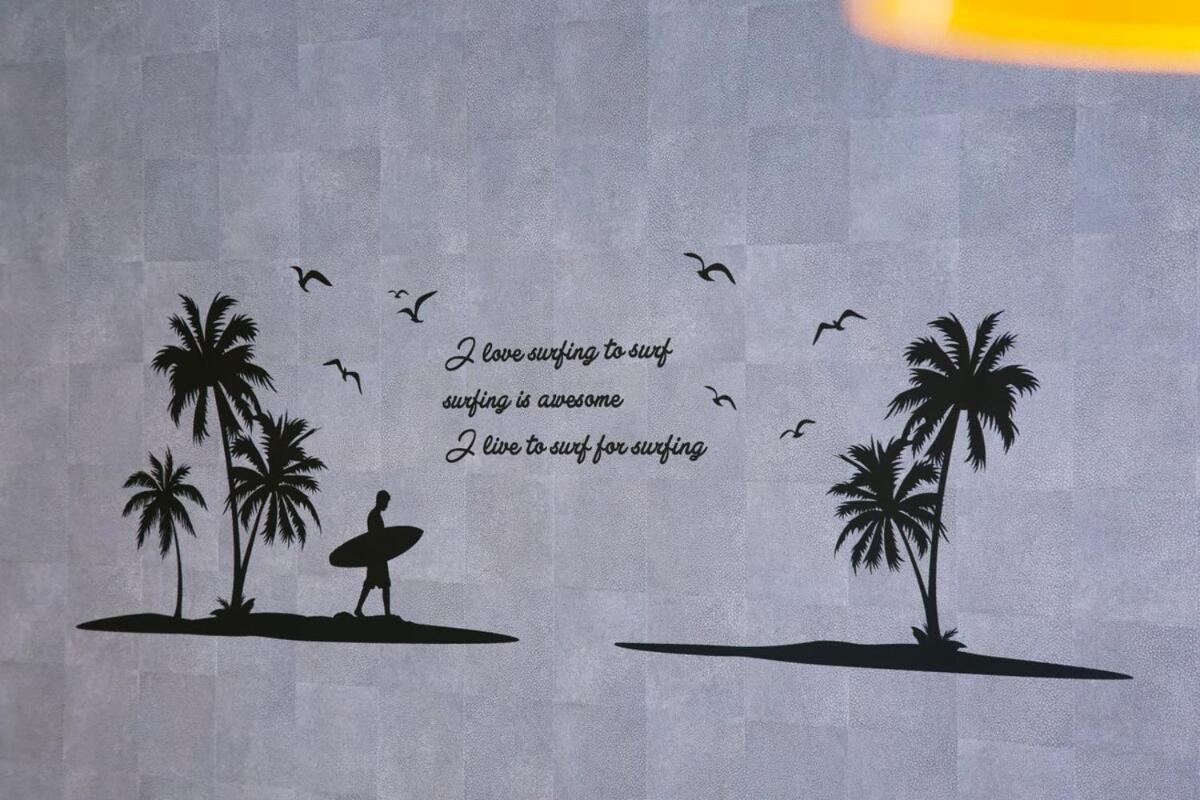 I love surfing to surf
surfing is awesome
I live to surf for surfing